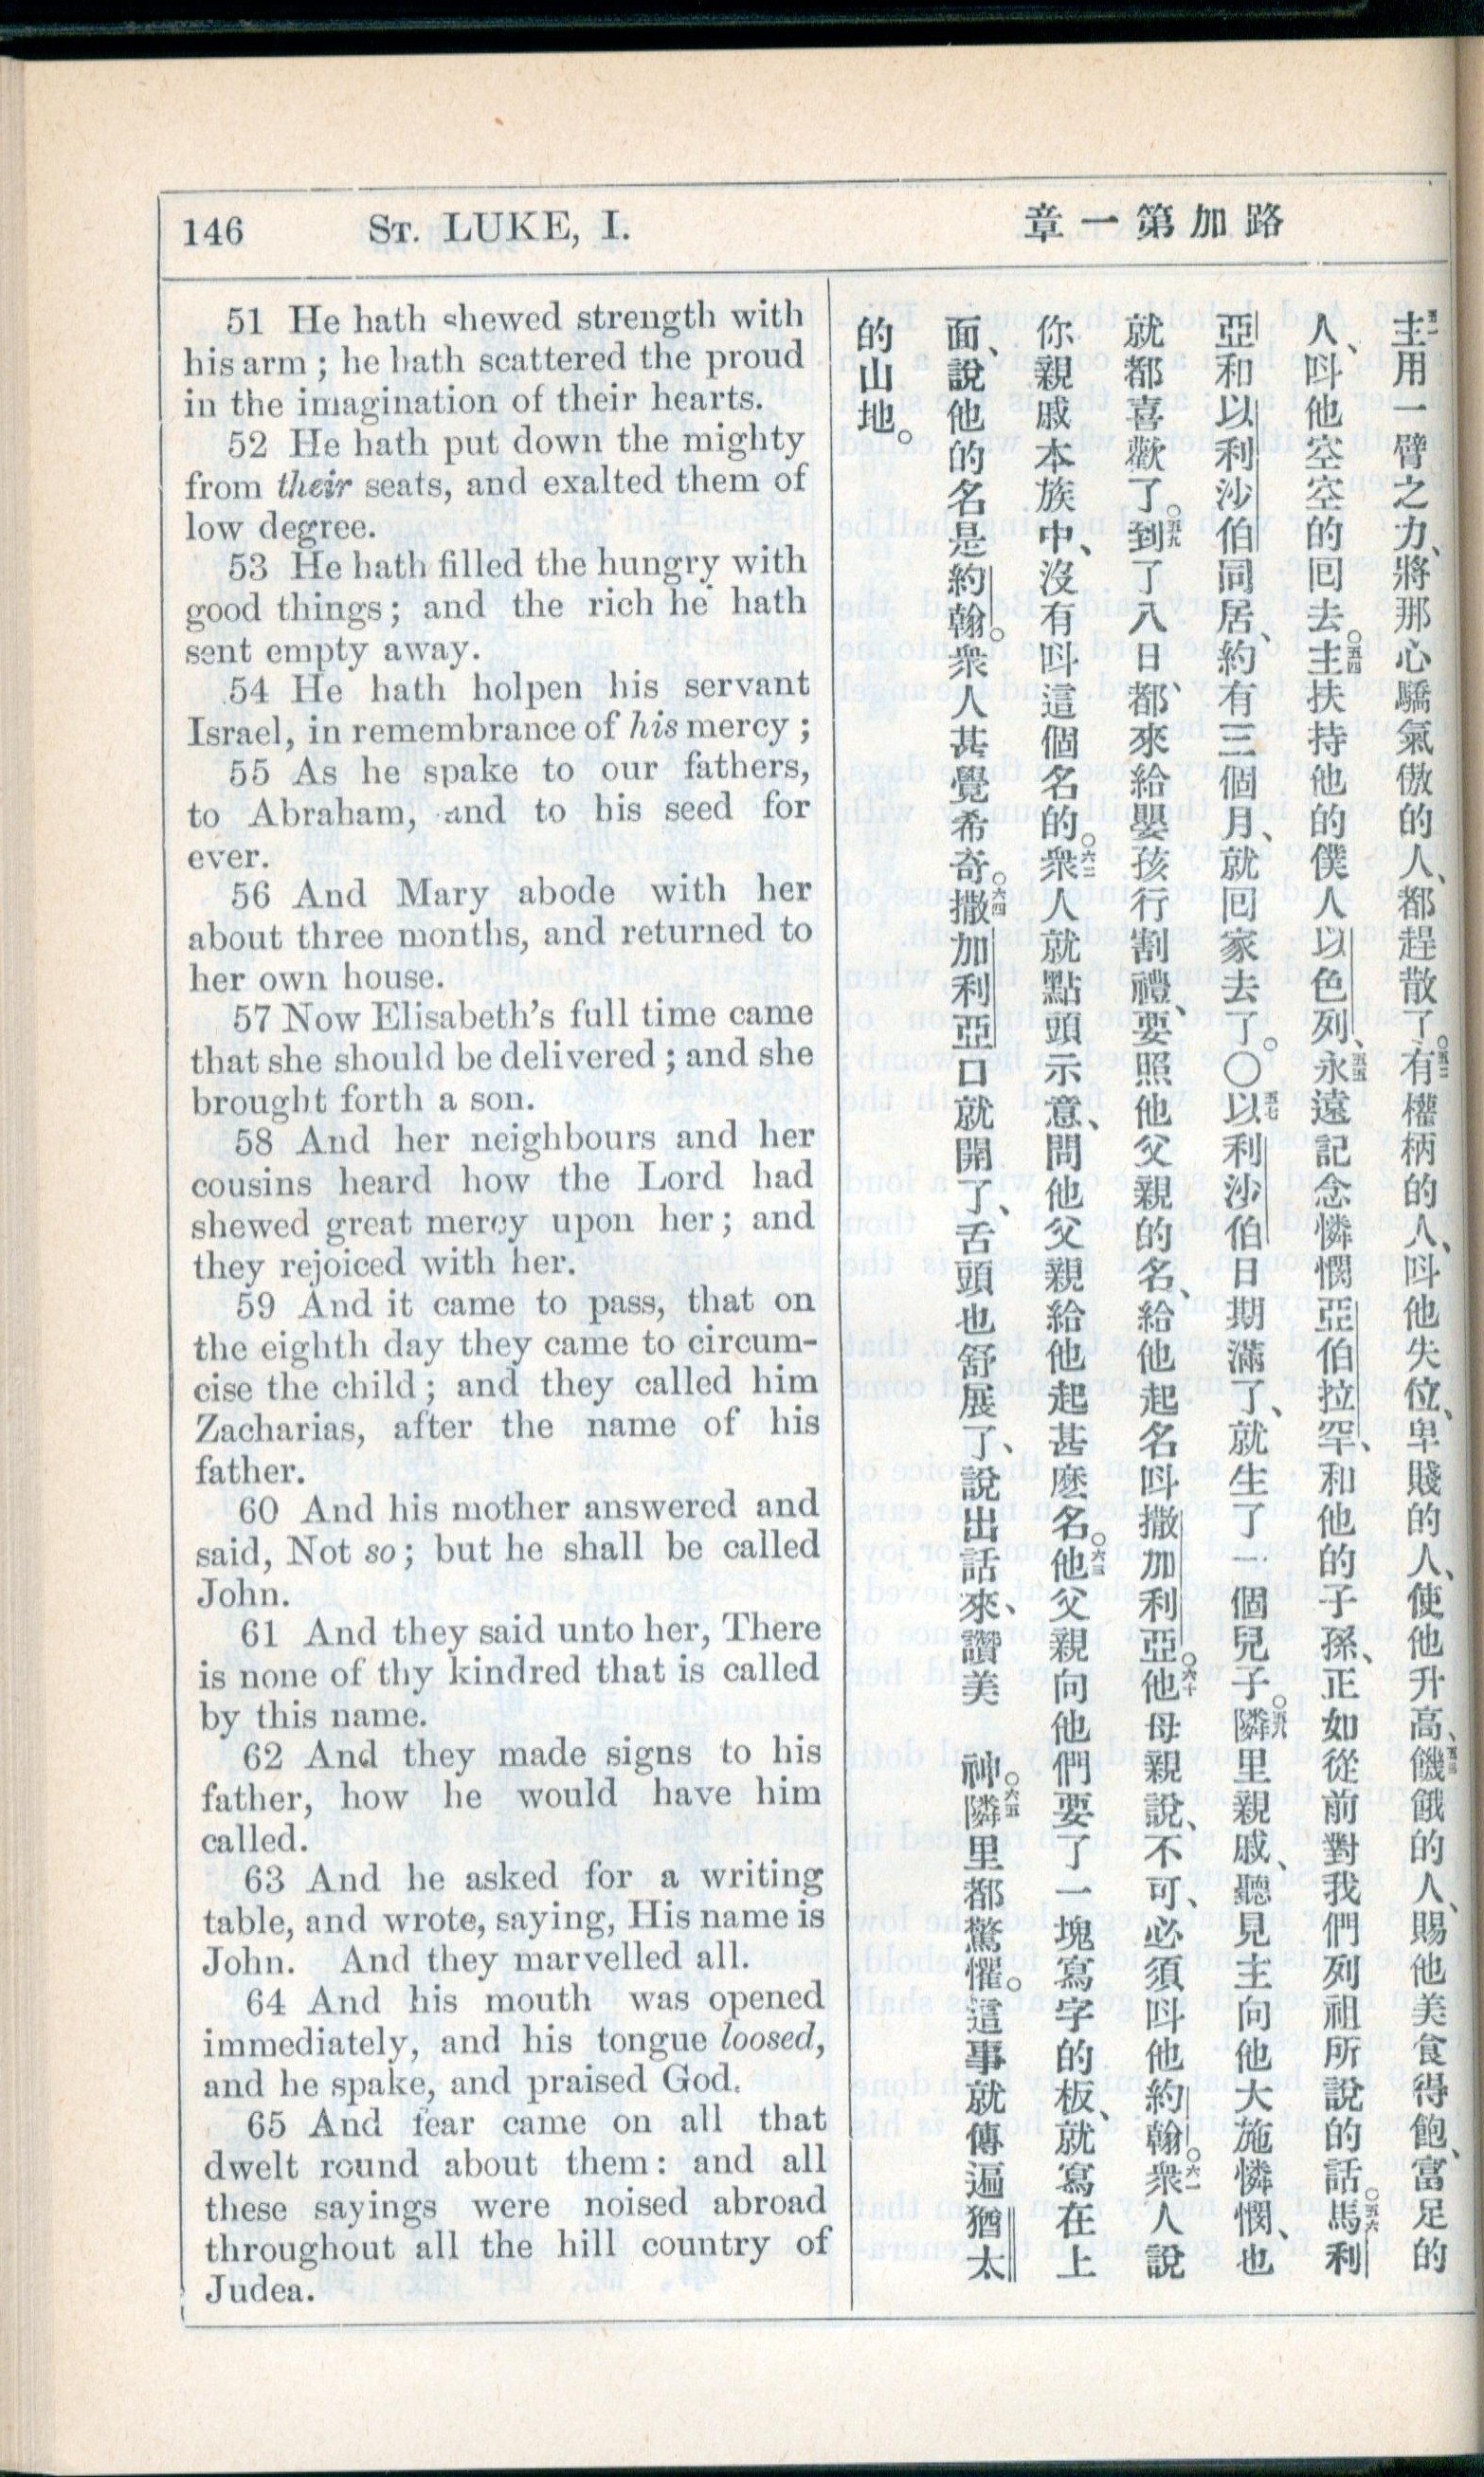 146 St. LUKE, I. 章一第加路
51 He hath shewed strength with
his arm ; he hath scattered the proud
in the imagination of their hearts.
52 He hath put down the mighty
from their seats, and exalted them of
low degree.
53 He hath filled the hungry with
good things ; and the rich he hath
sent empty away.
54 He hath holpen his servant
Israel, in remembrance of his mercy ;
55 As he spake to our fathers,
to Abraham, and to his seed for
ever.
56 And Mary abode with her
about three months, and returned to
her own house.
57 Now Elisabeth's full time came
that she should be delivered ; and she
brought forth a son.
58 And her neighbours and her
cousins heard how the Lord had
shewed great mercy upon her ; and
they rejoiced with her.
59 And it came to pass, that on
the eighth day they came to circum-
cise the child ; and they called him
Zacharias, after the name of his
father.
60 And his mother answered and
said, Not so ; but he shall be called
John.
61 And they said unto her, There
is none of thy kindred that is called
by this name.
62 And they made signs to his
father, how he would have him
called.
63 And he asked for a writing
table, and wrote, saying, His name is
John. And they marvelled all.
64 And his mouth was opened
immediately, and his tongue loosed,
and he spake, and praised God.
65 And fear came on all that
dwelt round about them: and all
these sayings were noised abroad
throughout all the hill country of
Judea.
五一主用一臂之力、將那心驕氣傲的人、都趕散了。五二有權柄的人、呌他失位、卑賤的人、使他升高、五三饑餓的人、賜他美食得飽、富足的
人、呌他空空的囘去。五四主扶持他的僕人以色列、五五永遠記念憐憫亞伯拉罕、和他的子孫、正如從前對我們列祖所說的話。五六馬利
亞和以利沙伯同居、約有三個月、就囘家去了。〇五七以利沙伯日期滿了、就生了一個兒子。五八隣里親戚、聽見主向他大施憐憫、也
就都喜歡了。五九到了八日、都來給嬰孩行割禮、要照他父親的名、給他起名呌撒加利亞。六十他母親說、不可、必須呌他約翰。六一衆人說
你親戚本族中、沒有呌這個名的。六二衆人就點頭示意、問他父親給他起甚麽名。六三他父親向他們要了一塊寫字的板、就寫在上
面、說他的名是約翰。衆人甚覺希奇。六四撒加利亞口就開了、舌頭也舒展了、說出話來、讚美 神。六五隣里都驚懼。這事就傳遍猶太
的山地。